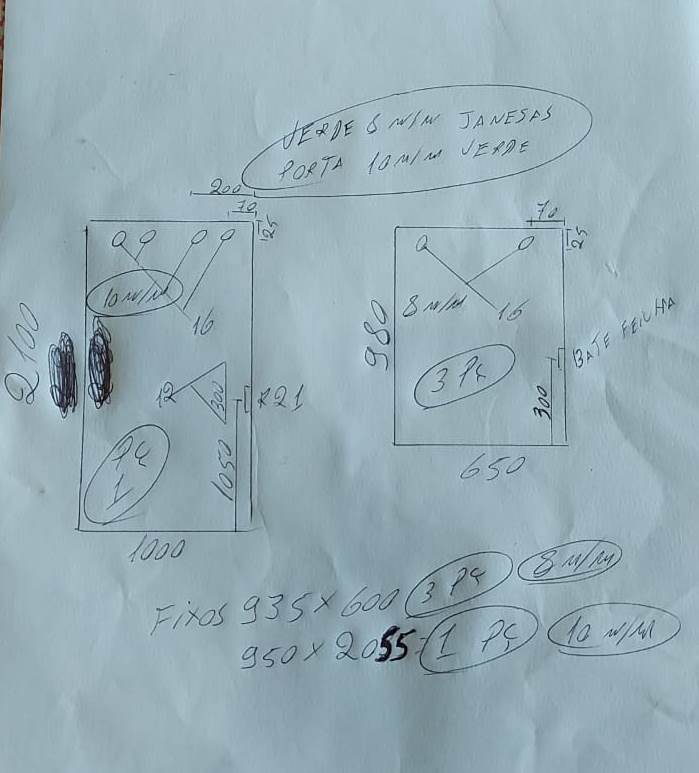 VERDE 8 M/M JANELAS
PORTA 10 M/M VERDE
200
70
25
10 M/M
16
2100
12
300
R21
1050
PÇ
1
1000
70
25
8 M/M
16
980
3 PÇ
BATE FEICHA
300
650
FIXOS 935 X 600 3 PÇ 8 M/M
950 X 2055 = 1 PÇ 10 M/M